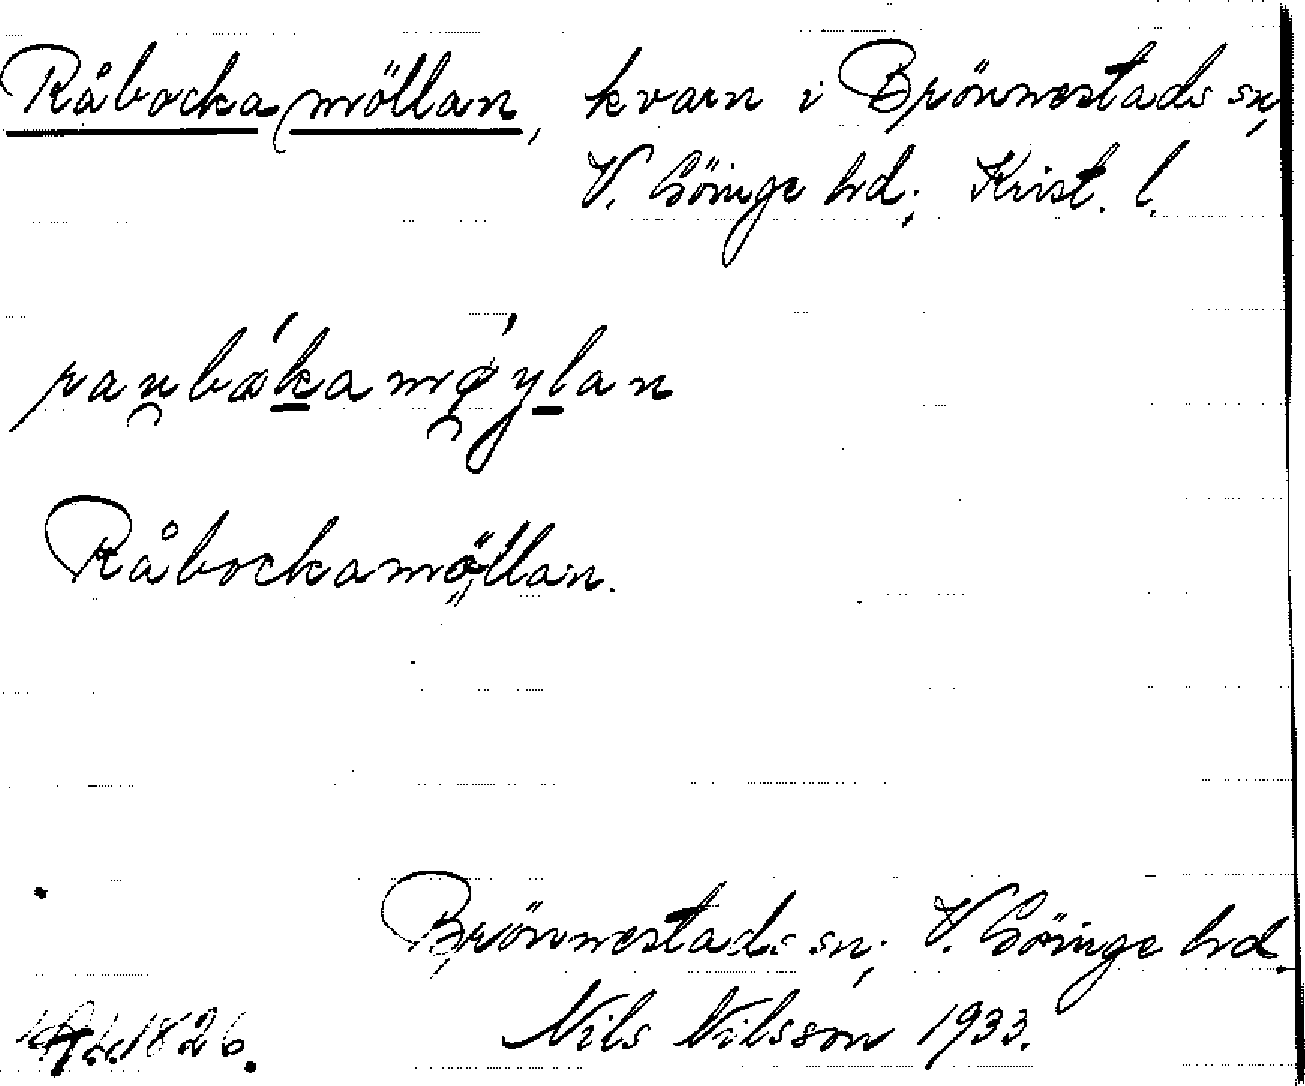 Råbockamöllan, kvarn i Brönnestads sn,
V. Göinge hd, Krist. l.
raubákamø̂ylan
Råbockamöllan.
Brönnestads sn, V. Göinge hd.
1826. Nils Nilsson 1933.